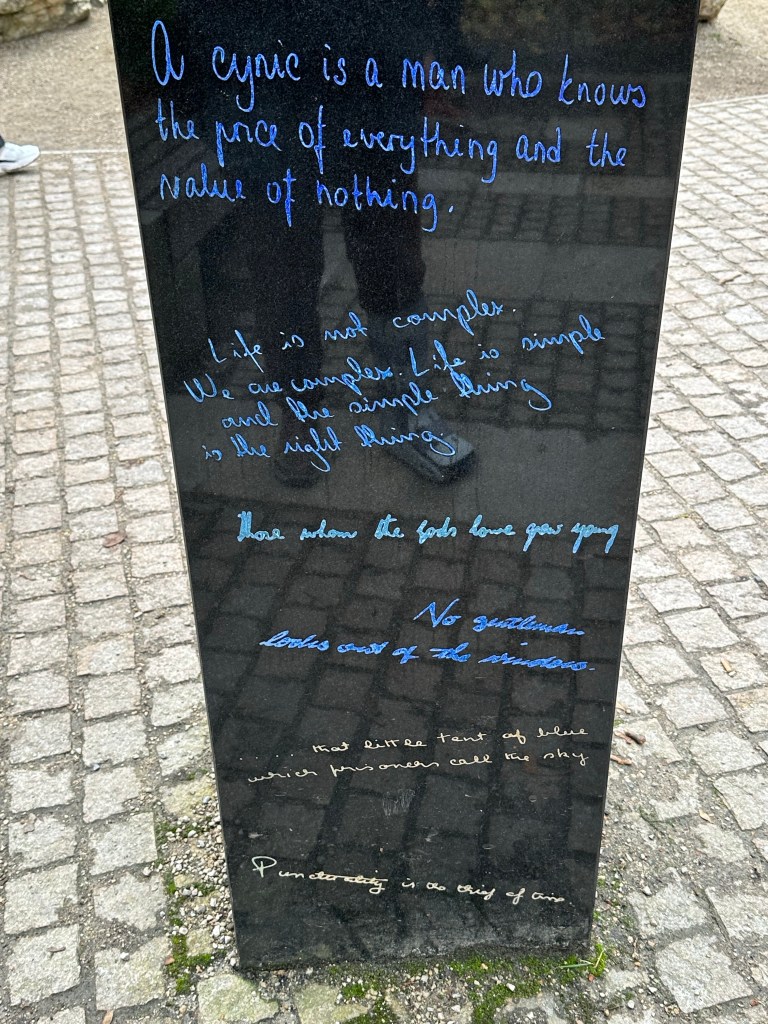 A cynic is a man who knows
the price of everything and the
value of nothing.
Life is not complex.
We are complex. Life is simple
and the simple thing
is the right thing.
Those whom the gods love grow young
No gentleman
looks out of the window.
. . . . . that little tent of blue
which prisoners call the sky
Punctuality is the thief of time